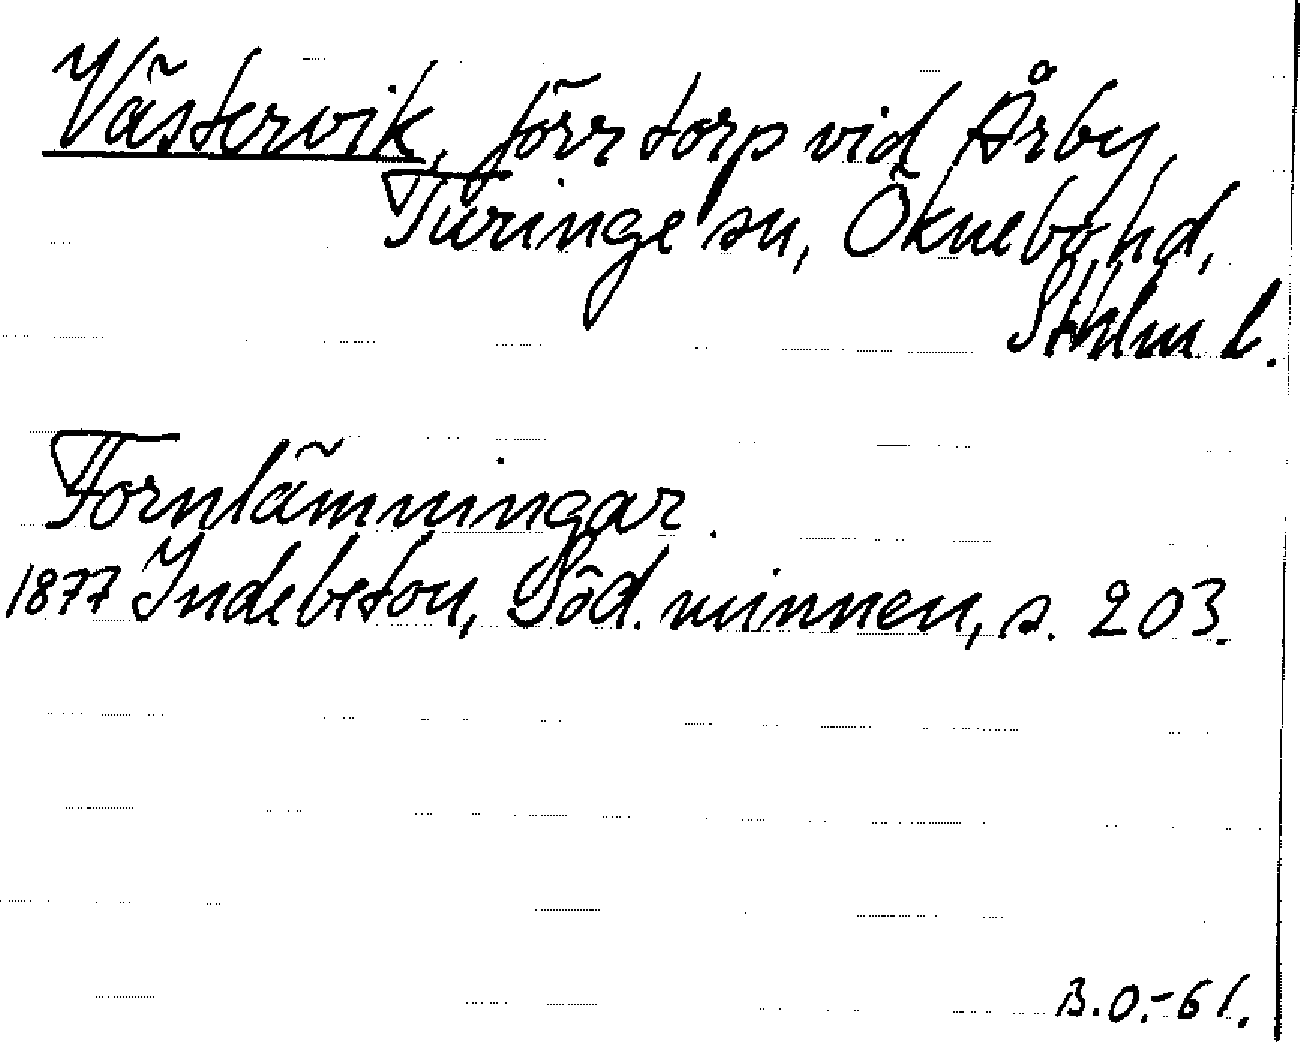 Västervik, förr torp vid Årby,
Turinge sn, Öknebo hd,
Sthlm l.
Fornlämningar.
1877 Indebetou, Söd. minnen, s. 203.
B.O.-61.